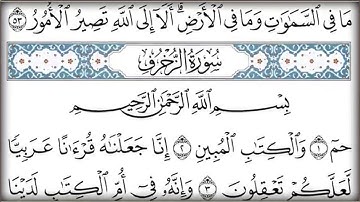 مَا فِي ٱلسَّمَٰوَٰتِ وَمَا فِي ٱلۡأَرۡضِۗ أَلَآ إِلَى ٱللَّهِ تَصِيرُ ٱلۡأُمُورُ ٥٣
سُورَةُ ٱلزُّخۡرُفِ
بِسۡمِ ٱللَّهِ ٱلرَّحۡمَٰنِ ٱلرَّحِيمِ
حمٓ ١ وَٱلۡكِتَٰبِ ٱلۡمُبِينِ ٢ إِنَّا جَعَلۡنَٰهُ قُرۡءَٰنًا عَرَبِيّٗا
لَّعَلَّكُمۡ تَعۡقِلُونَ ٣ وَإِنَّهُۥ فِيٓ أُمِّ ٱلۡكِتَٰبِ لَدَيۡنَا